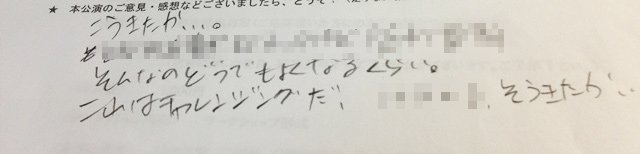 ★ 本公演のご意見・感想などございましたら、どうぞ
こうきたか…。
そんなのどうでもよくなるくらい。
これはチャレンジングだ、 そうきたか…